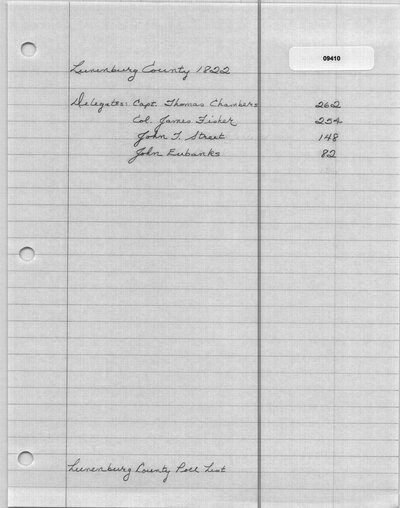 09410
Lunenburg County 1822
Delegates: Capt. Thomas Chambers 262
Col. James Fisher 254
John T. Street 148
John Eubanks 82
Lunenburg County Poll List